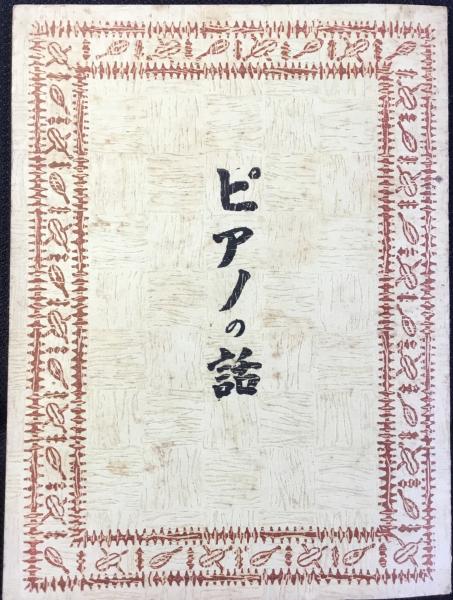 ピアノの話